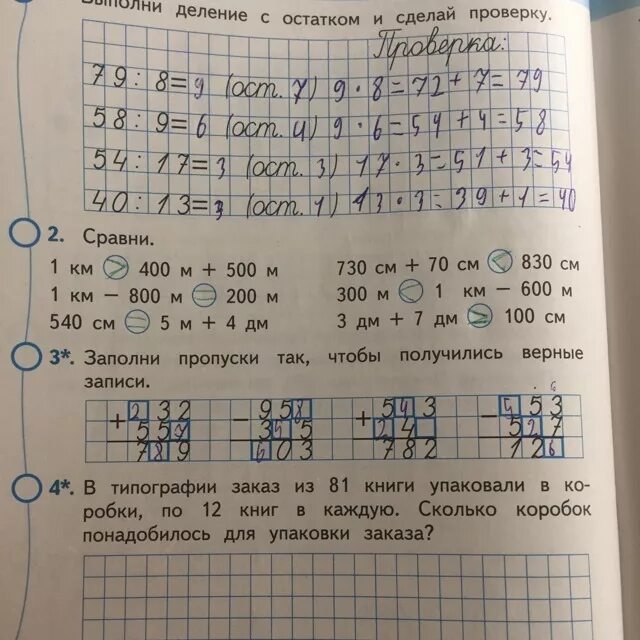 Выполни деление с остатком и сделай проверку.
Проверка:
79 : 8 = 9 (ост. 7) 9 · 8 = 72 + 7 = 79
58 : 9 = 6 (ост. 4) 9 · 6 = 54 + 4 = 58
54 : 17 = 3 (ост. 3) 17 · 3 = 51 + 3 = 54
40 : 13 = 3 (ост. 1) 13 · 3 = 39 + 1 = 40
2. Сравни.
1 км > 400 м + 500 м 730 см + 70 см < 830 см
1 км − 800 м = 200 м 300 м < 1 км − 600 м
540 см = 5 м + 4 дм 3 дм + 7 дм 100 см
3*. Заполни пропуски так, чтобы получились верные
записи.
+ 232 − 958 + 543 − 53
557 35 24 527
789 603 782 126
4*. В типографии заказ из 81 книги упаковали в ко-
робки, по 12 книг в каждую. Сколько коробок
понадобилось для упаковки заказа?